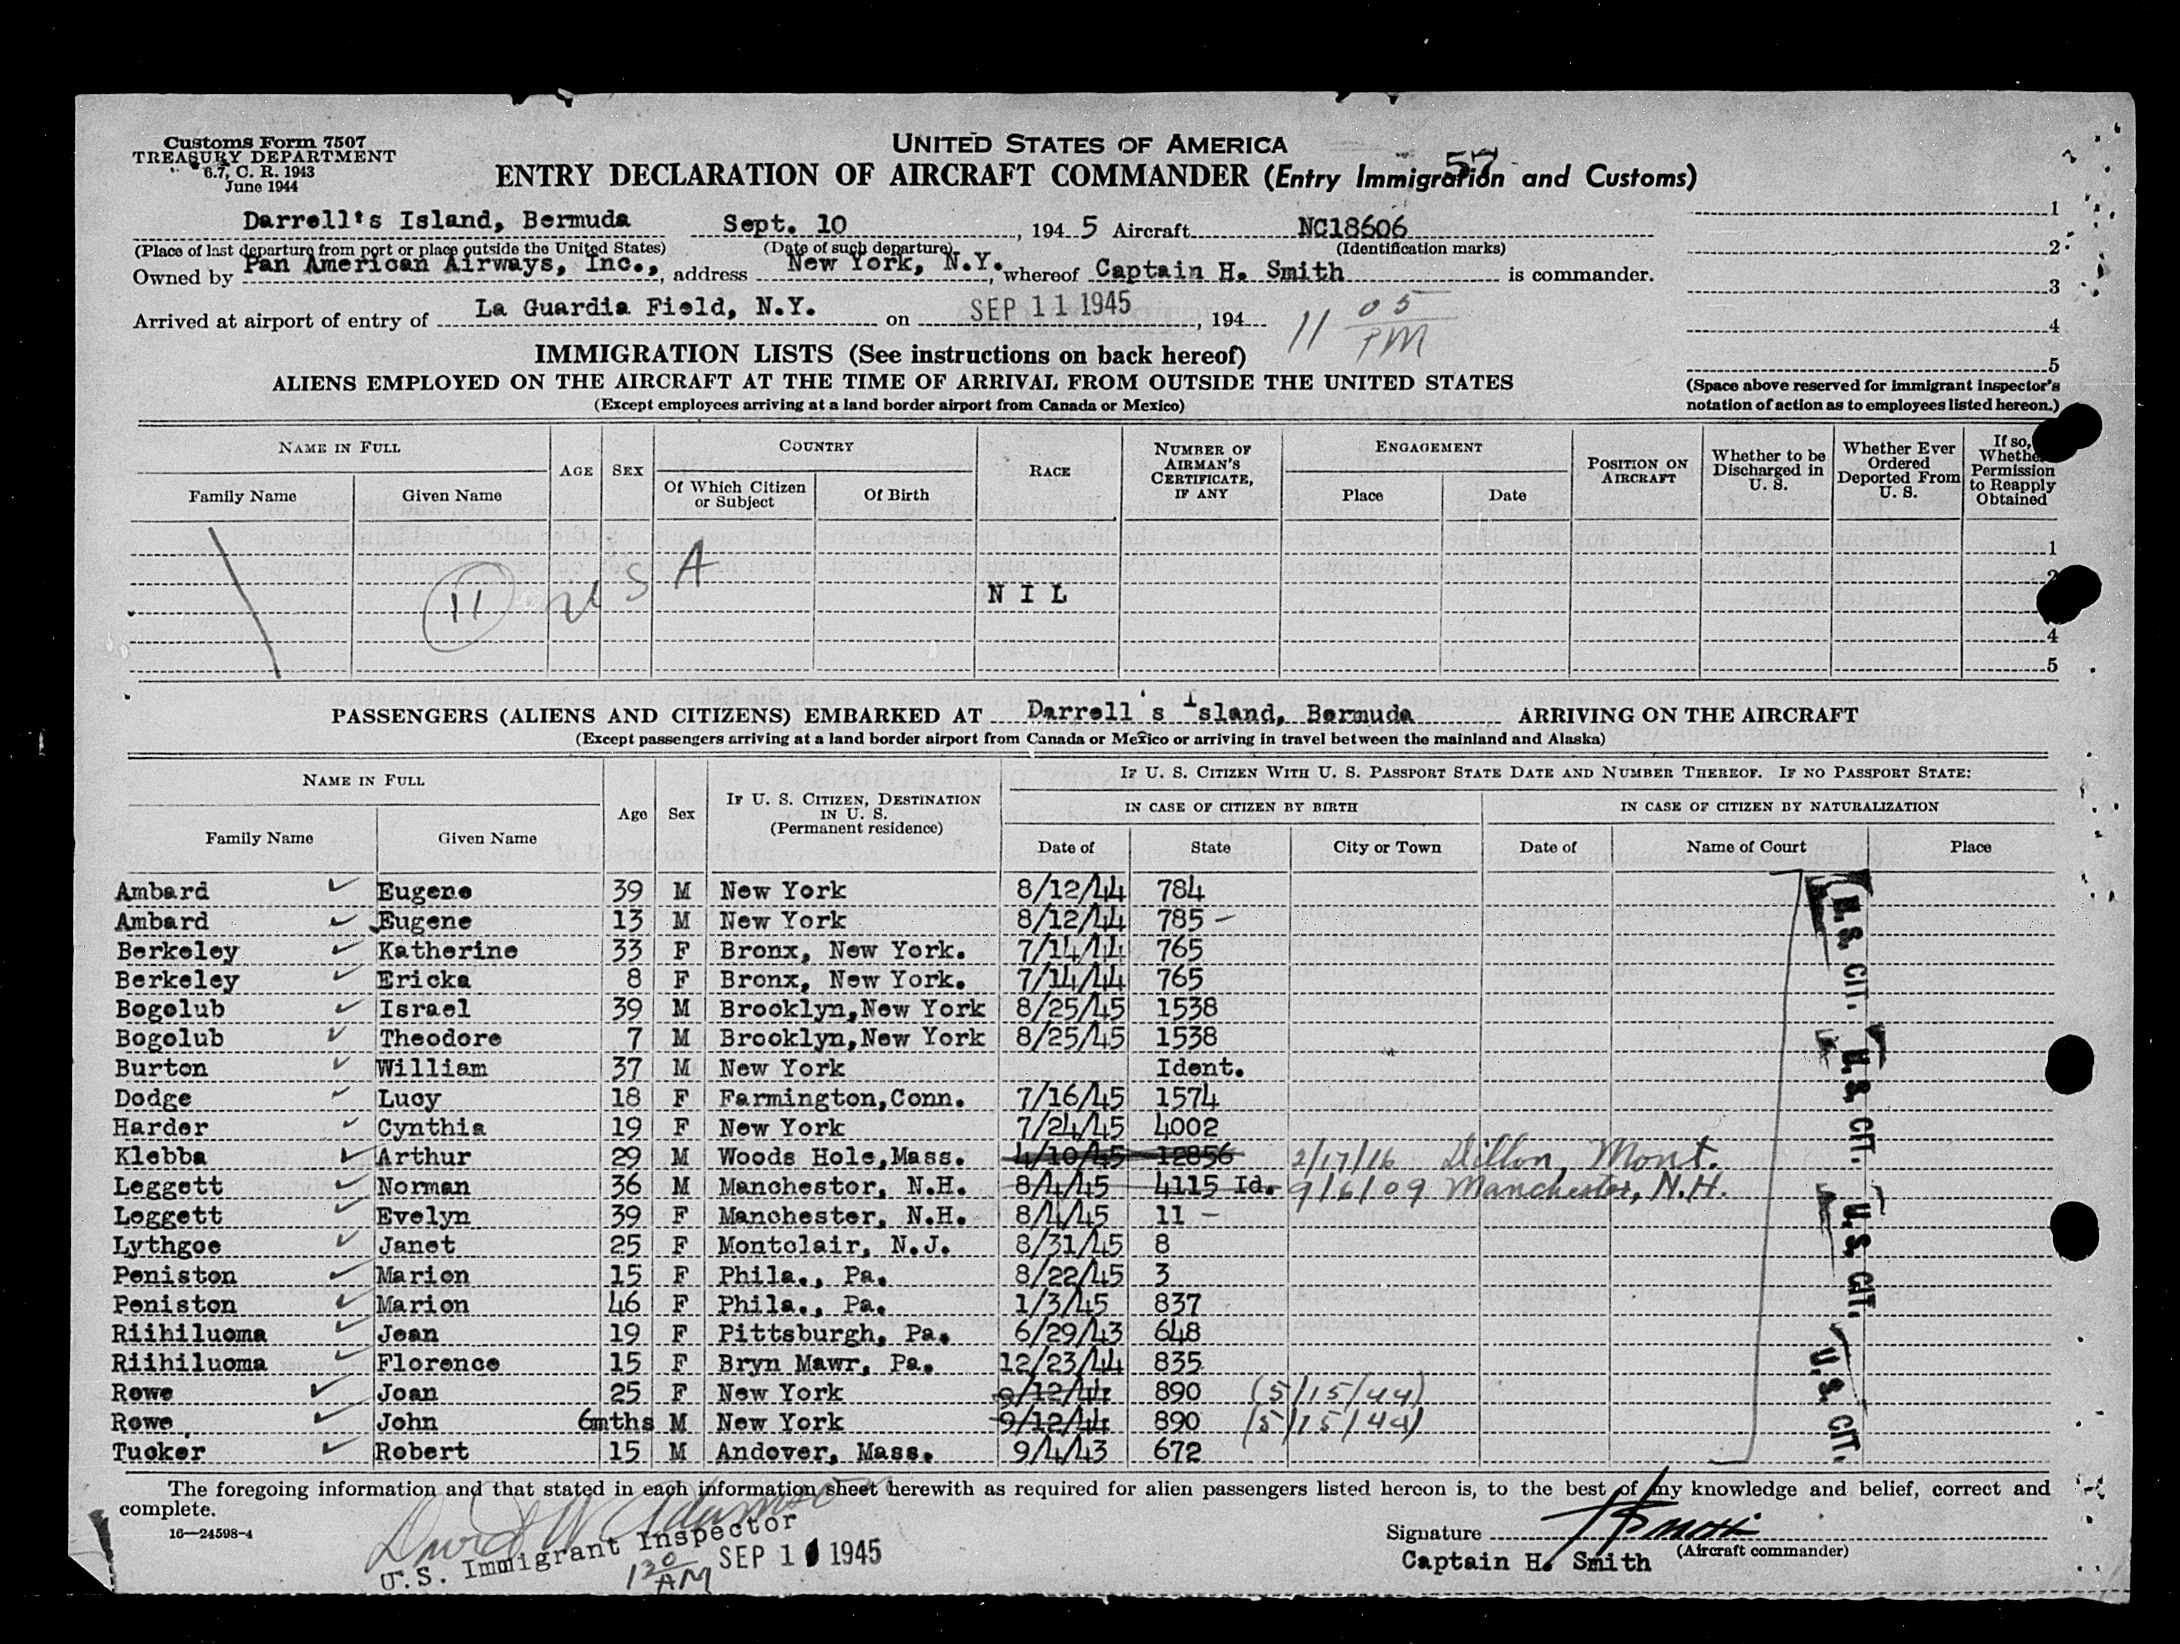 Customs Form 7507
TREASURY DEPARTMENT
6.7, C. R. 1943
June 1944
UNITED STATES OF AMERICA
57
ENTRY DECLARATION OF AIRCRAFT COMMANDER (Entry Immigration and Customs)
Darrell's Island, Bermuda Sept. 10, 194 5 Aircraft NC18606
(Place of last departure from port or place outside the United States) (Date of such departure) (Identification marks)
Owned by Pan American Airways, Inc., address New York, N.Y., whereof Captain H. Smith is commander.
Arrived at airport of entry of La Guardia Field, N.Y. on SEP 11 1945, 194
11 05 PM
1
2
3
4
5
(Space above reserved for immigrant inspector's
notation of action as to employees listed hereon.)
IMMIGRATION LISTS (See instructions on back hereof)
ALIENS EMPLOYED ON THE AIRCRAFT AT THE TIME OF ARRIVAL FROM OUTSIDE THE UNITED STATES
(Except employees arriving at a land border airport from Canada or Mexico)
NAME IN FULL
Family Name Given Name
AGE SEX
COUNTRY
Of Which Citizen or Subject Of Birth
RACE
NUMBER OF AIRMAN'S CERTIFICATE, IF ANY
ENGAGEMENT
Place Date
POSITION ON AIRCRAFT
Whether to be Discharged in U. S.
Whether Ever Ordered Deported From U. S.
If so, Whether Permission to Reapply Obtained
1
2
4
5
11 U S A
N I L
PASSENGERS (ALIENS AND CITIZENS) EMBARKED AT Darrell's Island, Bermuda ARRIVING ON THE AIRCRAFT
(Except passengers arriving at a land border airport from Canada or Mexico or arriving in travel between the mainland and Alaska)
NAME IN FULL
Family Name Given Name
Age Sex
IF U. S. CITIZEN, DESTINATION IN U. S. (Permanent residence)
IF U. S. CITIZEN WITH U. S. PASSPORT STATE DATE AND NUMBER THEREOF. IF NO PASSPORT STATE:
IN CASE OF CITIZEN BY BIRTH IN CASE OF CITIZEN BY NATURALIZATION
Date of State City or Town Date of Name of Court Place
Ambard Eugene 39 M New York 8/12/44 784
Ambard Eugene 13 M New York 8/12/44 785 -
Berkeley Katherine 33 F Bronx, New York. 7/14/44 765
Berkeley Ericka 8 F Bronx, New York. 7/14/44 765
Bogolub Israel 39 M Brooklyn,New York 8/25/45 1538
Bogolub Theodore 7 M Brooklyn,New York 8/25/45 1538
Burton William 37 M New York Ident.
Dodge Lucy 18 F Farmington,Conn. 7/16/45 1574
Harder Cynthia 19 F New York 7/24/45 4002
Klebba Arthur 29 M Woods Hole,Mass. 4/10/45 12856 2/17/16 Dillon, Mont.
Leggett Norman 36 M Manchester, N.H. 8/4/45 4115 Id. 9/6/09 Manchester, N.H.
Leggett Evelyn 39 F Manchester, N.H. 8/4/45 11 -
Lythgoe Janet 25 F Montclair, N.J. 8/31/45 8
Peniston Marion 15 F Phila., Pa. 8/22/45 3
Peniston Marion 46 F Phila., Pa. 1/3/45 837
Riihiluoma Jean 19 F Pittsburgh, Pa. 6/29/43 648
Riihiluoma Florence 15 F Bryn Mawr, Pa. 12/23/44 835
Rowe Joan 25 F New York 9/12/44 890 (5/15/44)
Rowe John 6mths M New York 9/12/44 890 (5/15/44)
Tucker Robert 15 M Andover, Mass. 9/4/43 672
U.S. CIT.
U.S. CIT.
U.S. CIT.
U.S. CIT.
The foregoing information and that stated in each information sheet herewith as required for alien passengers listed hereon is, to the best of my knowledge and belief, correct and
complete.
16—24598-4
David W. Adamson
U.S. Immigrant Inspector
SEP 1 1945
12 0 AM
Signature H Smith
(Aircraft commander)
Captain H. Smith